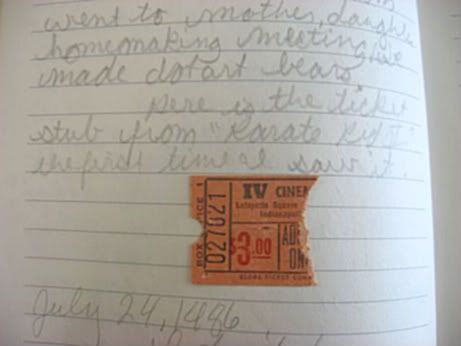 went to mother, daughter
homemaking meeting, we
made dotart bears
Here is the ticket
stub from "Karate Kid II"
the first time I saw it.
BOX OFFICE 1
027021
IV CINEM
Lafayette Square
Indianapol
$3.00
ADM
ON
GLOBE TICKET COM
July 24, 1986